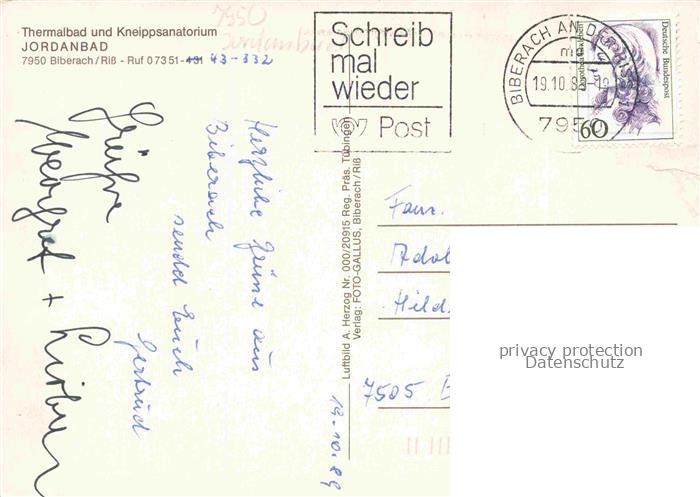 7950
Jordanbad
Thermalbad und Kneippsanatorium
JORDANBAD
7950 Biberach/Riß - Ruf 07351-431 43-332
Schreib
mal
wieder
Post
BIBERACH AN DER RISS
19.10.89-19
7950
Deutsche Bundespost
60
Herzliche Grüße aus
Biberach
sendet Euch
Gertrud
19.10.89
Grüße
Luftbild A. Herzog Nr. 000/20915 Reg. Präs. Tübingen
Verlag: FOTO-GALLUS, Biberach/Riß
Fam.
Adol
Hild
7505
privacy protection
Datenschutz